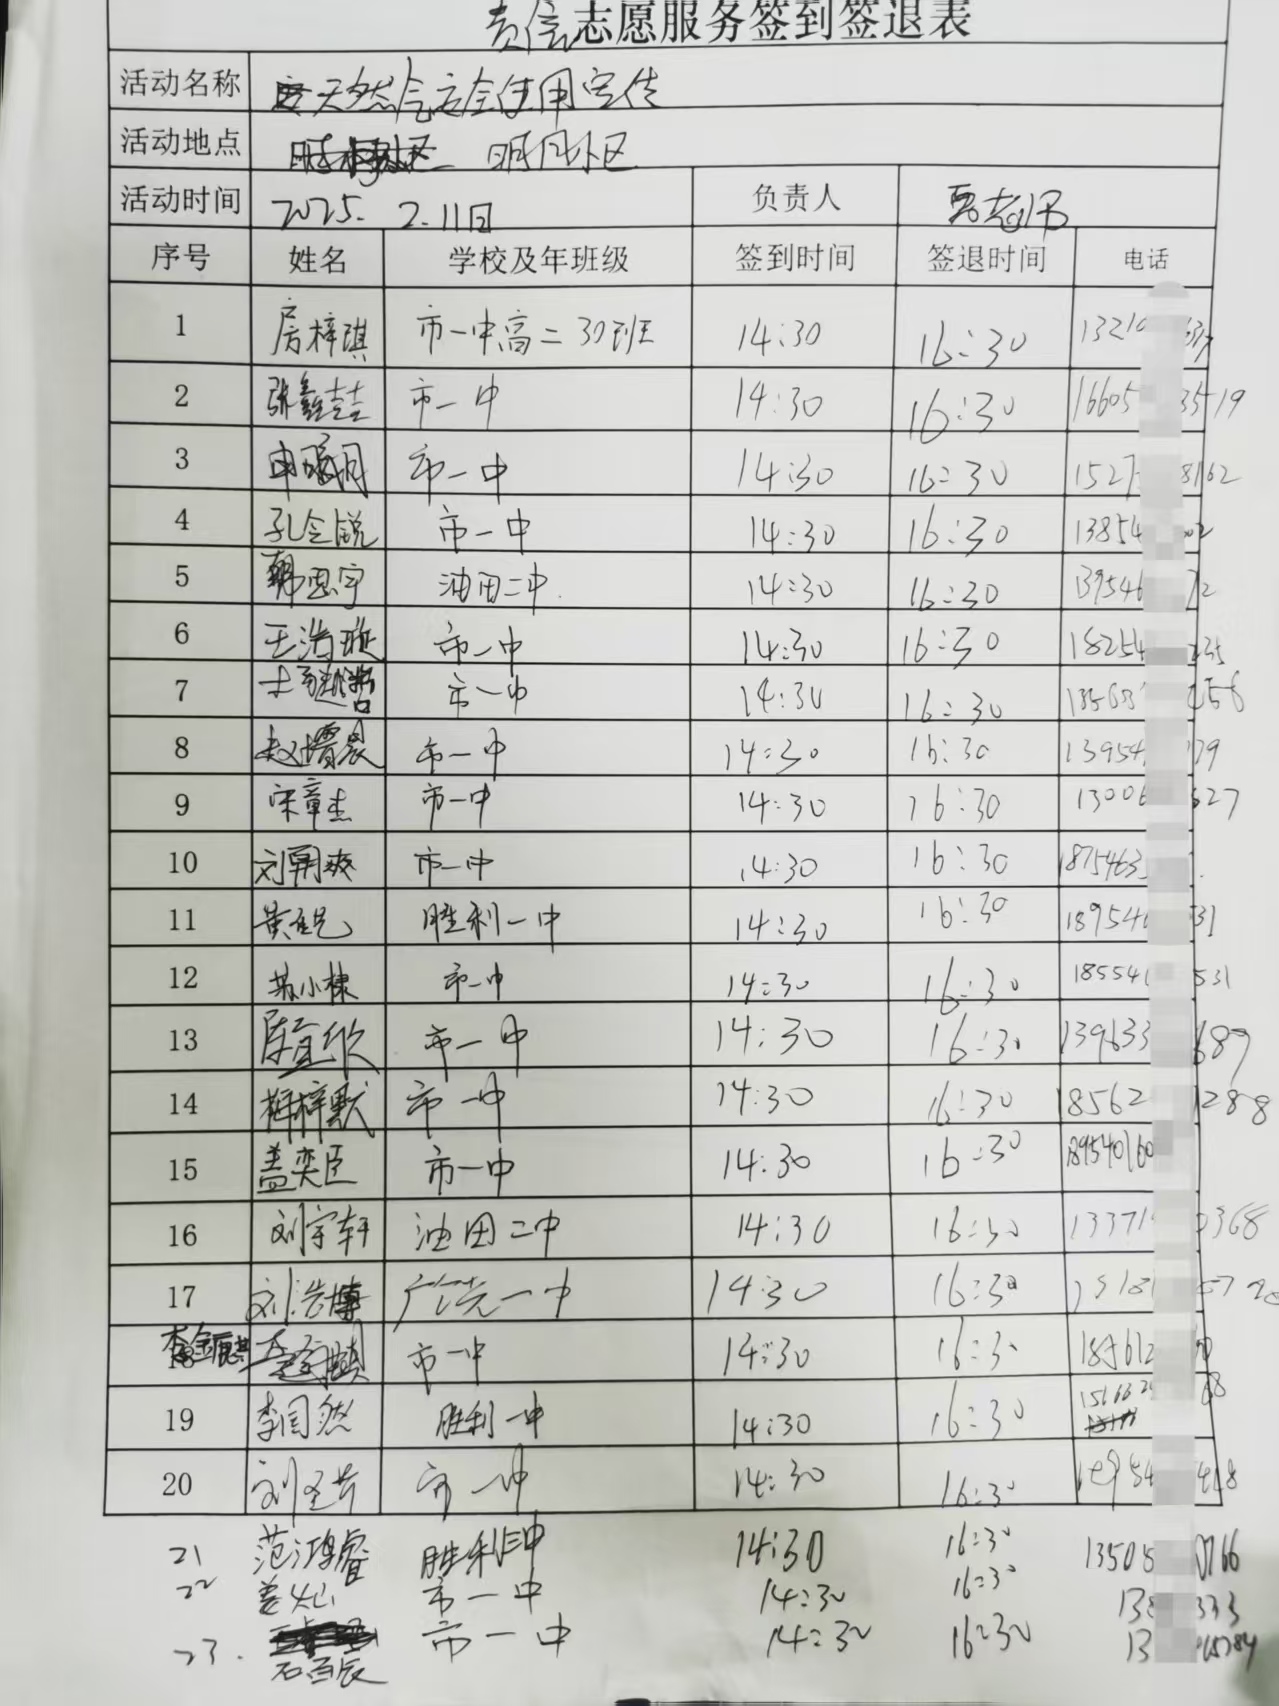 责信志愿服务签到签退表
活动名称 天然气安全使用宣传
活动地点 明月社区
活动时间 2025. 2.11日 负责人
序号 姓名 学校及年班级 签到时间 签退时间 电话
1 房梓琪 市一中高二30班 14:30 16:30 13210
2 张鑫喆 市一中 14:30 16:30 16605 3519
3 申曦月 市一中 14:30 16:30 1527 8162
4 孔令锐 市一中 14:30 16:30 13854 02
5 韩思宇 油田二中. 14:30 16:30 139546 2
6 王浩璇 市一中 14:30 16:30 18254 35
7 市一中 14:30 16:30 13563 456
8 赵增晨 市一中 14:30 16:30 13954 79
9 宋章杰 市一中 14:30 16:30 13006 527
10 刘朔爽 市一中 14:30 16:30 1875463
11 胜利一中 14:30 16:30 189546 31
12 苏小棣 市一中 14:30 16:30 18554 531
13 市一中 14:30 16:30 139633 689
14 梓默 市一中 14:30 16:30 18562 1288
15 盖奕臣 市一中 14:30 16:30 189540160
16 刘宇轩 油田二中 14:30 16:30 13371 0368
17 刘浩博 广饶一中 14:30 16:30
18 李金麒 市一中 14:30 16:30 185612
19 李闰然 胜利一中 14:30 16:30 68
20 刘圣芳 市一中 14:30 16:30
21 范鸿睿 胜利一中 14:30 16:30 13505 0766
22 姜灿 市一中 14:30 16:30 138 333
23. 石百辰 市一中 14:30 16:30 13